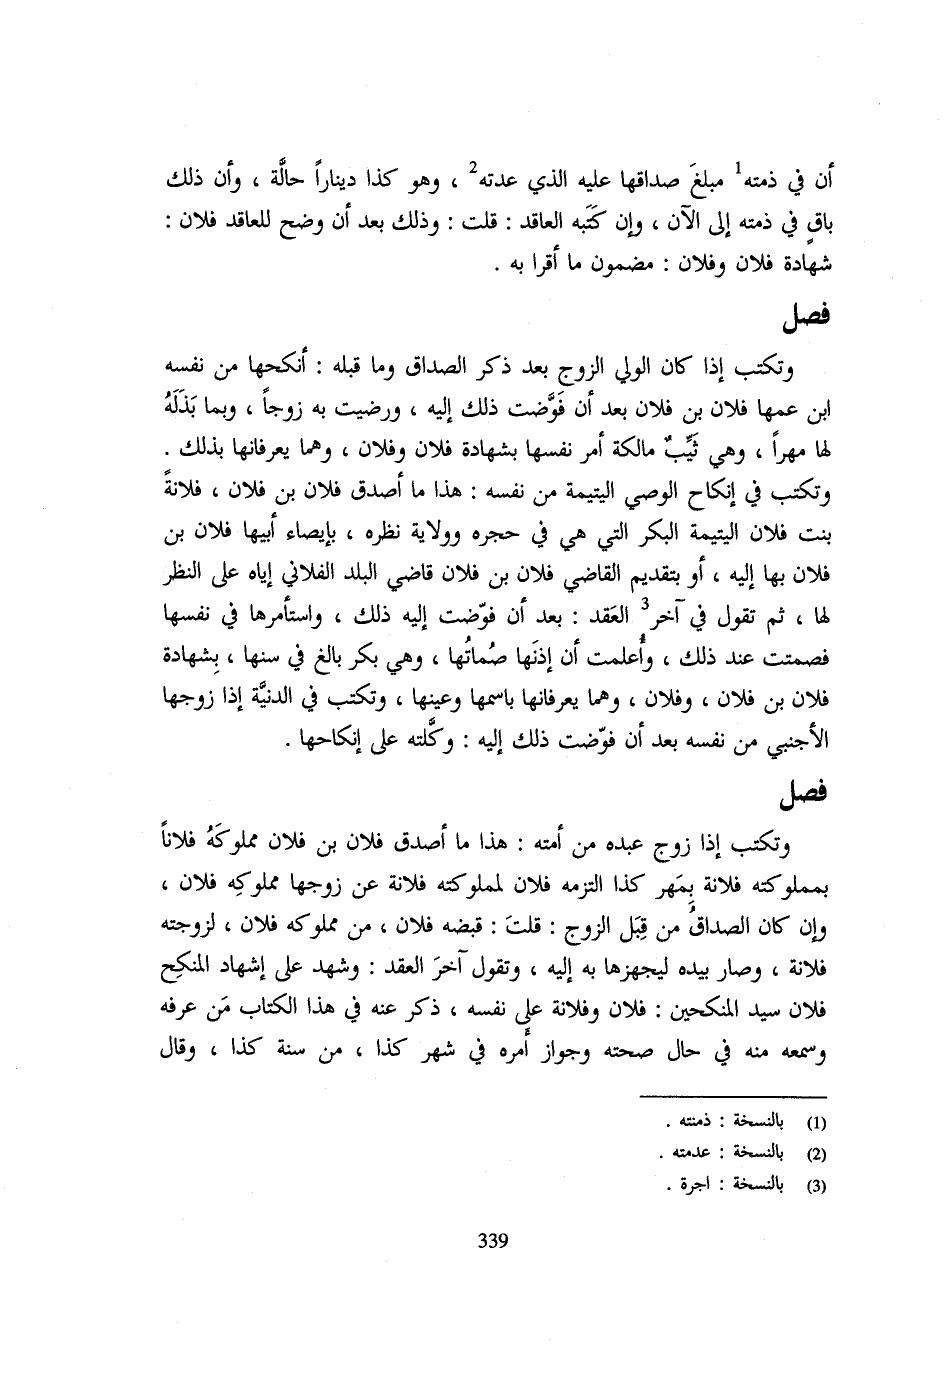 أن في ذمته1 مبلغَ صداقها عليه الذي عدته2 ، وهو كذا ديناراً حالَّة ، وأن ذلك
باقٍ في ذمته إلى الآن ، وإن كَتَبه العاقد : قلت : وذلك بعد أن وضح للعاقد فلان :
شهادة فلان وفلان : مضمون ما أقرا به .
فصل
وتكتب إذا كان الولي الزوج بعد ذكر الصداق وما قبله : أنكحها من نفسه
ابن عمها فلان بن فلان بعد أن فَوَّضت ذلك إليه ، ورضيت به زوجاً ، وبما بَذَلَهُ
لها مهراً ، وهي ثَيِّبٌ مالكة أمر نفسها بشهادة فلان وفلان ، وهما يعرفانها بذلك .
وتكتب في إنكاح الوصي اليتيمة من نفسه : هذا ما أصدق فلان بن فلان ، فلانةً
بنت فلان اليتيمة البكر التي هي في حجره وولاية نظره ، بإيصاء أبيها فلان بن
فلان بها إليه ، أو بتقديم القاضي فلان بن فلان قاضي البلد الفلاني إياه على النظر
لها ، ثم تقول في آخر3 العَقد : بعد أن فوّضت إليه ذلك ، واستأمرها في نفسها
فصمتت عند ذلك ، وأُعلمت أن إذنَها صُماتُها ، وهي بكر بالغ في سنها ، بِشهادة
فلان بن فلان ، وفلان ، وهما يعرفانها باسمها وعينها ، وتكتب في الدنيَّة إذا زوجها
الأجنبي من نفسه بعد أن فوّضت ذلك إليه : وكَّلته على إنكاحها .
فصل
وتكتب إذا زوج عبده من أمته : هذا ما أصدق فلان بن فلان مملوكَهُ فلاناً
بمملوكته فلانة بِمَهر كذا التزمه فلان لمملوكته فلانة عن زوجها مملوكِه فلان ،
وإن كان الصداقُ من قِبَل الزوج : قلتَ : قبضه فلان ، من مملوكه فلان ، لزوجته
فلانة ، وصار بيده ليجهزها به إليه ، وتقول آخرَ العقد : وشهد على إشهاد المنكِح
فلان سيد المنكحين : فلان وفلانة على نفسه ، ذكر عنه في هذا الكتاب مَن عرفه
وسمعه منه في حال صحته وجواز أمره في شهر كذا ، من سنة كذا ، وقال
(1) بالنسخة : ذمنته .
(2) بالنسخة : عدمته .
(3) بالنسخة : اجرة .
339